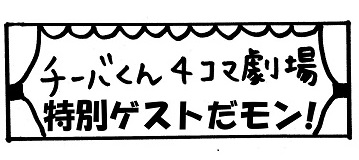 チーバくん4コマ劇場
特別ゲストだモン!